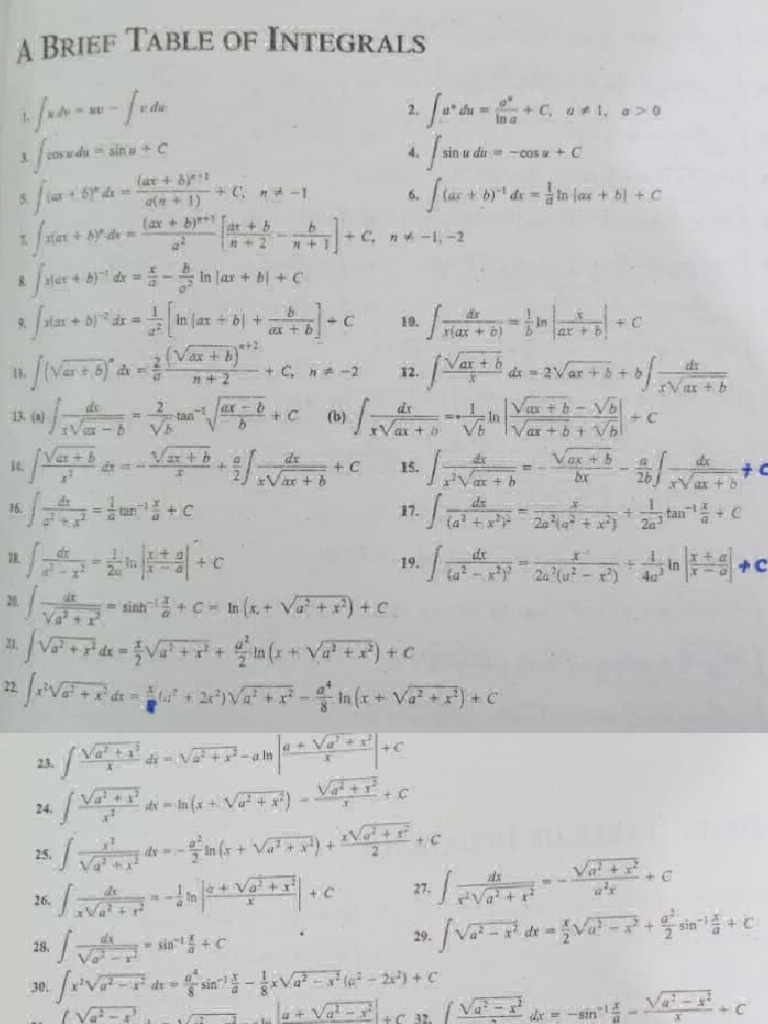 A BRIEF TABLE OF INTEGRALS
1. ∫ u dv = uv − ∫ v du 2. ∫ a^u du = a^u/ln a + C, a ≠ 1, a > 0
3. ∫ cos u du = sin u + C 4. ∫ sin u du = −cos u + C
5. ∫ (ax + b)^n dx = (ax + b)^(n+1)/(a(n + 1)) + C, n ≠ −1 6. ∫ (ax + b)^(−1) dx = (1/a) ln |ax + b| + C
7. ∫ x(ax + b)^n dx = (ax + b)^(n+1)/a² [(ax + b)/(n + 2) − b/(n + 1)] + C, n ≠ −1, −2
8. ∫ x(ax + b)^(−1) dx = x/a − (b/a²) ln |ax + b| + C
9. ∫ x(ax + b)^(−2) dx = (1/a²) [ln |ax + b| + b/(ax + b)] + C 10. ∫ dx/(x(ax + b)) = (1/b) ln |x/(ax + b)| + C
11. ∫ (√(ax + b))^n dx = (2/a) (√(ax + b))^(n+2)/(n + 2) + C, n ≠ −2 12. ∫ √(ax + b)/x dx = 2√(ax + b) + b ∫ dx/(x√(ax + b))
13. (a) ∫ dx/(x√(ax − b)) = (2/√b) tan⁻¹ √((ax − b)/b) + C (b) ∫ dx/(x√(ax + b)) = (1/√b) ln |(√(ax + b) − √b)/(√(ax + b) + √b)| + C
14. ∫ √(ax + b)/x² dx = −√(ax + b)/x + (a/2) ∫ dx/(x√(ax + b)) + C 15. ∫ dx/(x²√(ax + b)) = −√(ax + b)/(bx) − (a/2b) ∫ dx/(x√(ax + b)) + C
16. ∫ dx/(a² + x²) = (1/a) tan⁻¹ (x/a) + C 17. ∫ dx/(a² + x²)² = x/(2a²(a² + x²)) + (1/2a³) tan⁻¹ (x/a) + C
18. ∫ dx/(a² − x²) = (1/2a) ln |(x + a)/(x − a)| + C 19. ∫ dx/(a² − x²)² = x/(2a²(a² − x²)) + (1/4a³) ln |(x + a)/(x − a)| + C
20. ∫ dx/√(a² + x²) = sinh⁻¹ (x/a) + C = ln (x + √(a² + x²)) + C
21. ∫ √(a² + x²) dx = (x/2)√(a² + x²) + (a²/2) ln (x + √(a² + x²)) + C
22. ∫ x²√(a² + x²) dx = (x/8)(a² + 2x²)√(a² + x²) − (a⁴/8) ln (x + √(a² + x²)) + C
23. ∫ √(a² + x²)/x dx = √(a² + x²) − a ln |(a + √(a² + x²))/x| + C
24. ∫ √(a² + x²)/x² dx = ln (x + √(a² + x²)) − √(a² + x²)/x + C
25. ∫ x²/√(a² + x²) dx = −(a²/2) ln (x + √(a² + x²)) + x√(a² + x²)/2 + C
26. ∫ dx/(x√(a² + x²)) = −(1/a) ln |(a + √(a² + x²))/x| + C 27. ∫ dx/(x²√(a² + x²)) = −√(a² + x²)/(a²x) + C
28. ∫ dx/√(a² − x²) = sin⁻¹ (x/a) + C 29. ∫ √(a² − x²) dx = (x/2)√(a² − x²) + (a²/2) sin⁻¹ (x/a) + C
30. ∫ x²√(a² − x²) dx = (a⁴/8) sin⁻¹ (x/a) − (1/8)x√(a² − x²) (a² − 2x²) + C
∫ √(a² − x²) |a + √(a² − x²)| + C 32. ∫ √(a² − x²)/x² dx = −sin⁻¹ (x/a) − √(a² − x²)/x + C